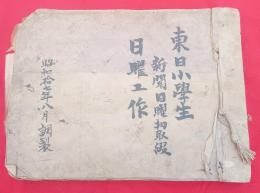 東日小學生
新聞日曜切取綴
日曜工作
昭和拾七年八月調製